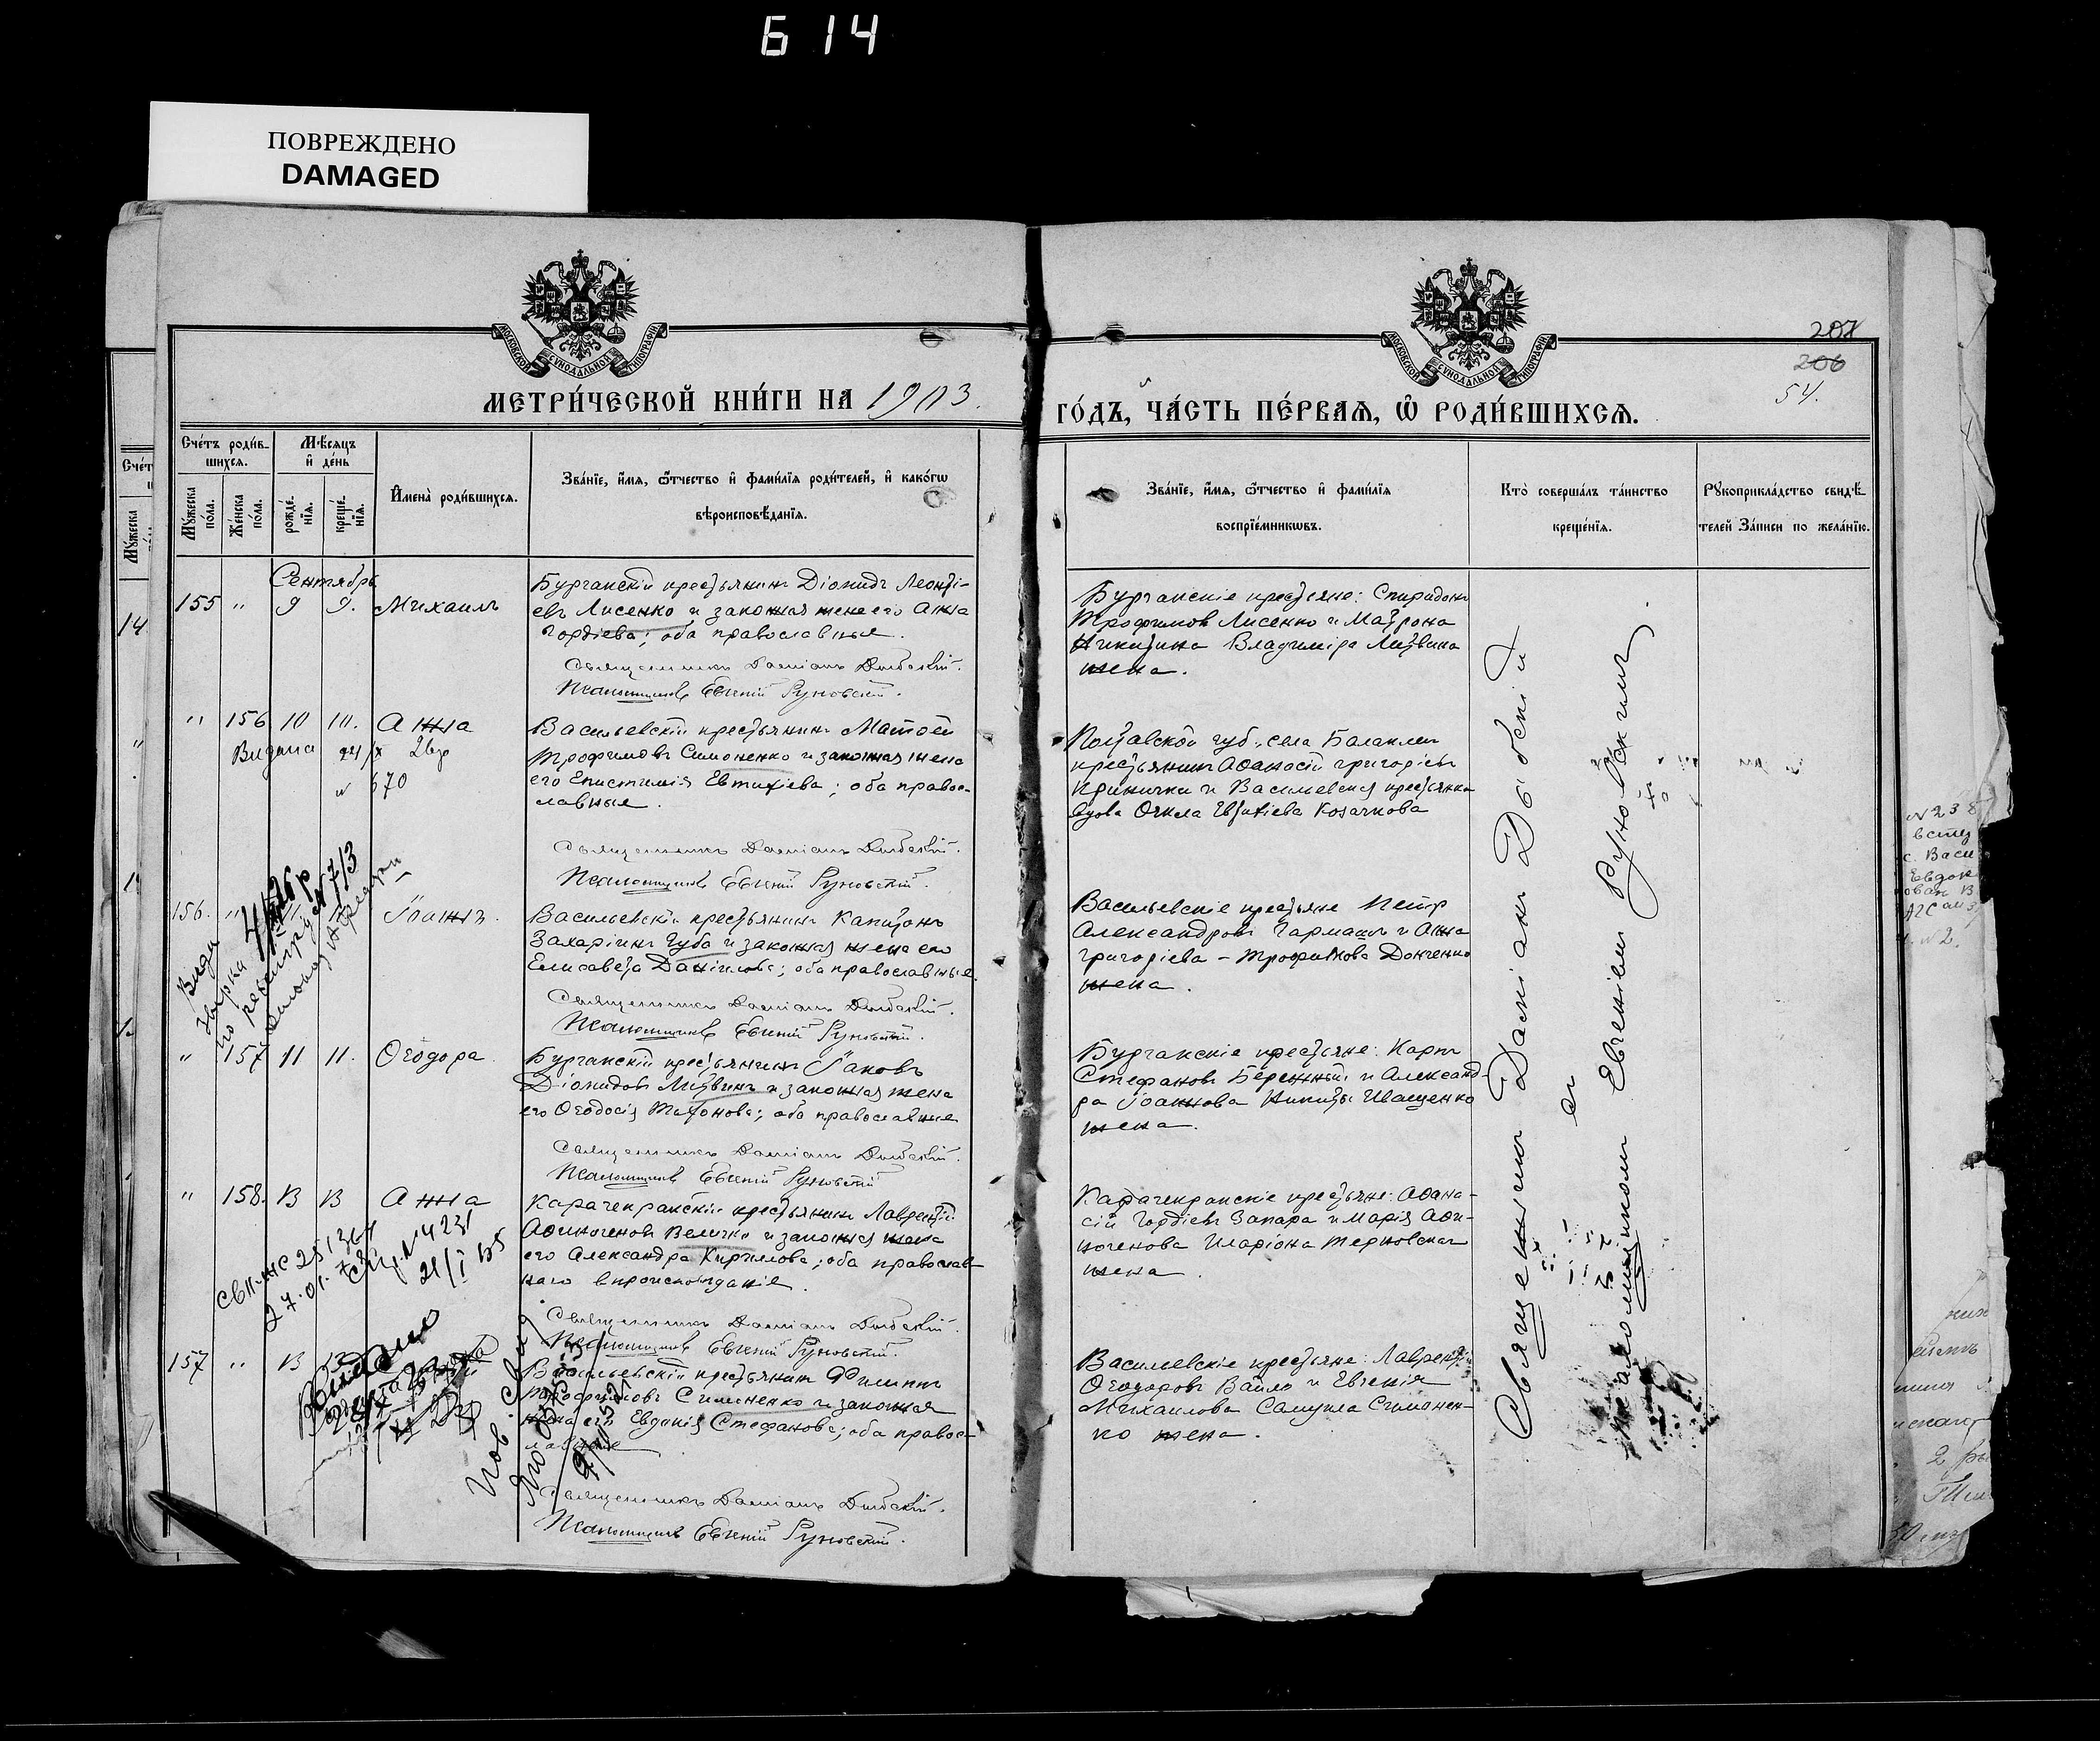 Б 14
ПОВРЕЖДЕНО
DAMAGED
МОСКОВСКОЙ СѴНОДАЛЬНОЙ ТИПОГРАФІИ
МОСКОВСКОЙ СѴНОДАЛЬНОЙ ТИПОГРАФІИ
207
206
54.
МЕТРИ́ЧЕСКОЙ КНИ́ГИ НА 1903
ГО́ДЪ, ЧА́СТЬ ПЕ́РВАѦ, Ѡ РОДИ́ВШИХСѦ.
Сче́тъ роди́в-
шихсѧ.
Му́жеска по́ла.
Же́нска по́ла.
Мѣ́сѧцъ
и де́нь
рожде́-
нїѧ.
креще́-
нїѧ.
Имена̀ роди́вшихсѧ.
Зва́нїе, и́мѧ, ѻ́тчество и фами́лїѧ роди́телей, и како́гѡ
вѣроисповѣ́данїѧ.
Зва́нїе, и́мѧ, ѻ́тчество и фами́лїѧ
воспрїе́мникѡвъ.
Кто̀ соверша́лъ та́инство
креще́нїѧ.
Рꙋкоприкла́дство свидѣ́-
телей за́писи по жела́нїю.
Сентябрь
155 " 9 9. Михаилъ
Бурчанскій крестьянинъ Діомидъ Леонті-
евъ Лисенко и законная жена его Анна
Гордіева; оба православные.
Священникъ Даміанъ Дыбскій.
Псаломщикъ Евгеній Руновскій.
Бурчанскіе крестьяне: Спиридонъ
Трофимовъ Лисенко и Матрона
Никитина Владиміра Литвина
жена.
" 156 10 10. Анна
Видана
670
Васильевскій крестьянинъ Матөей
Трофимовъ Симоненко и законная жена
его Епистимія Евтихіева; оба правос-
лавные.
Священникъ Даміанъ Дыбскій.
Псаломщикъ Евгеній Руновскій.
Полтавской губ., села Балаклеи
крестьянинъ Аөанасій Григорьевъ
Криничка и Васильевская крестьянка
вдова Өекла Евтихіева Козачкова
156. " Іоаннъ.
Васильевскій крестьянинъ Капитонъ
Захаріинъ Губа и законная жена его
Елисавета Даніилова; оба православные.
Священникъ Даміанъ Дыбскій.
Псаломщикъ Евгеній Руновскій.
Васильевскіе крестьяне Петръ
Александровъ Гармашъ и Анна
Григоріева - Трофимова Донченко
жена.
" 157 11 11. Өеодора
Бурчанскій крестьянинъ Іаковъ
Діомидовъ Литвинъ и законная жена
его Өеодосія Тихонова; оба православные
Священникъ Даміанъ Дыбскій.
Псаломщикъ Евгеній Руновскій
Бурчанскіе крестьяне: Карпъ
Стефановъ Бережный и Александ-
ра Іоаннова Никиты Иващенко
жена.
" 158. 13 13 Анна
Карачекракскій крестьянинъ Лаврентій
Аөиногеновъ Величко и законная жена
его Александра Кирилова; оба православ-
наго вѣроисповѣданія.
Священникъ Даміанъ Дыбскій.
Псаломщикъ Евгеній Руновскій.
Карачекракскіе крестьяне: Аөана-
сій Гордіевъ Запара и Марія Аөи-
ногенова Иларіона Терновскаго
жена.
157 " 13 13
Видано
Васильевскій крестьянинъ Филиппъ
Трофимовъ Симоненко и законная
жена его Евдокія Стефанова; оба правос-
лавные
Священникъ Даміанъ Дыбскій.
Псаломщикъ Евгеній Руновскій.
Васильевскіе крестьяне: Лаврентій
Өеодоровъ Вайло и Евгенія
Михаилова Самуила Симонен-
ко жена.
Священникъ Даміанъ Дыбскій
съ
псаломщикомъ Евгеніемъ Руновскимъ.